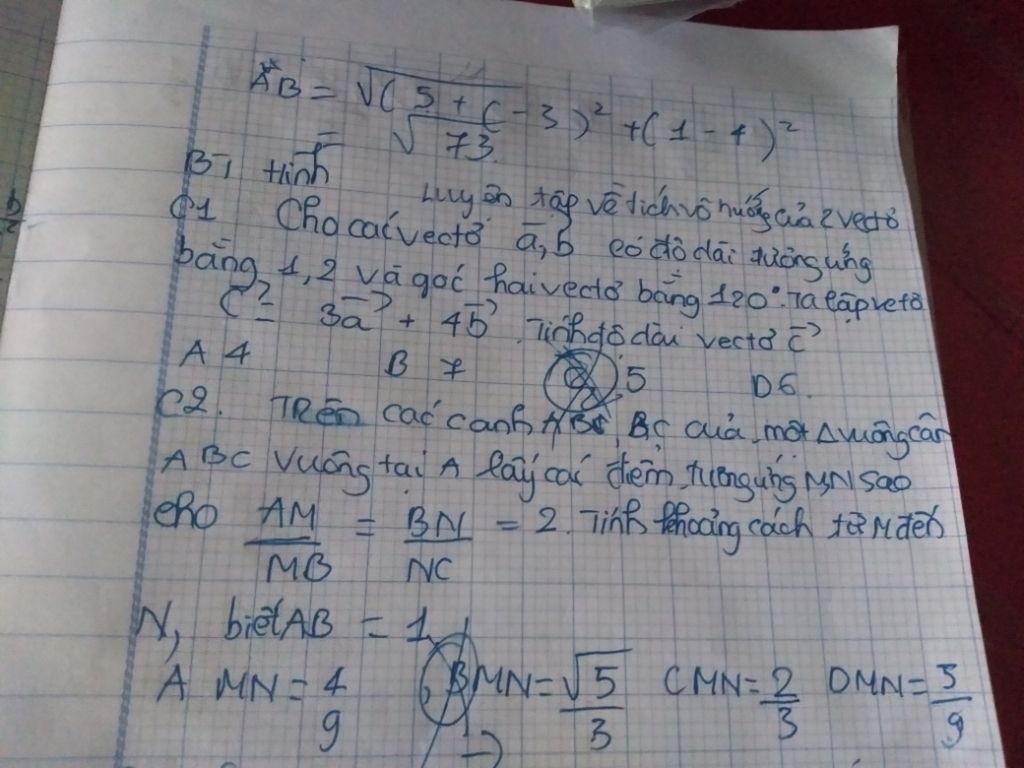 AB = √(5 + (-3)² + (1 - 4)²
= √73
B7 tính
Luyện tập về tích vô hướng của 2 vectơ
C1 Cho các vectơ a, b có độ dài tương ứng
bằng 1, 2 và góc hai vectơ bằng 120°. Ta lập vectơ
C = 3a + 4b. Tính độ dài vectơ c
A 4 B 7 C 5 D 6.
C2. Trên các cạnh AB, BC của một Δ vuông cân
ABC vuông tại A lấy các điểm tương ứng M, N sao
cho AM/MB = BN/NC = 2. Tính khoảng cách từ M đến
N, biết AB = 1
A MN = 4/9 B MN = √5/3 C MN = 2/3 D MN = 5/9